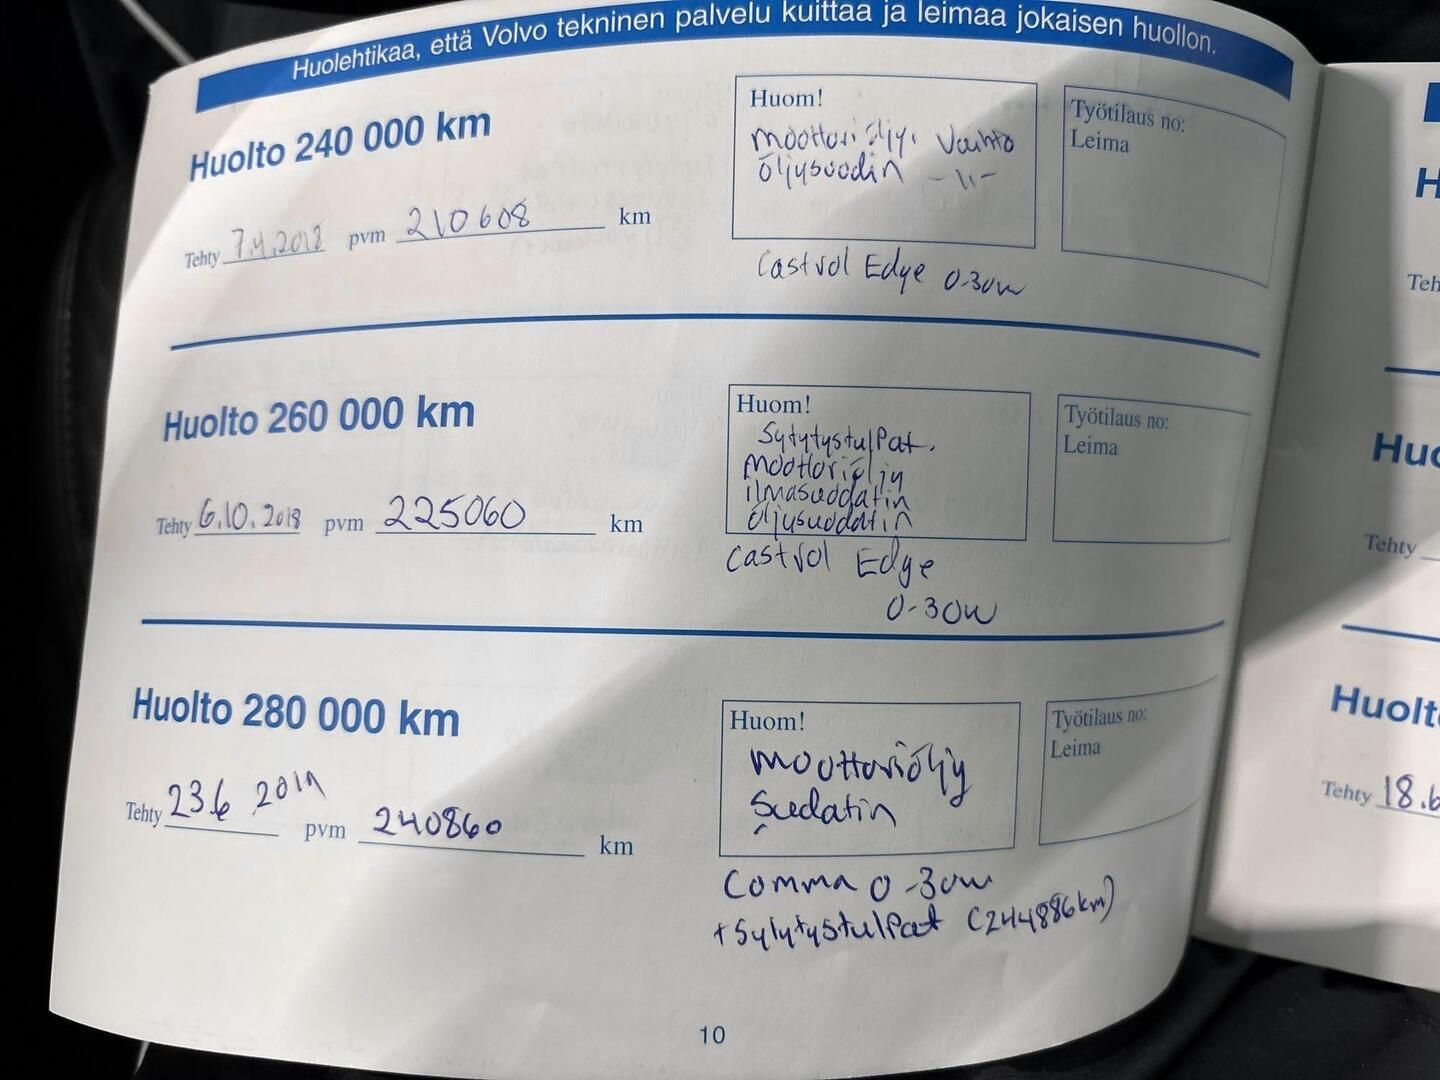 Huolehtikaa, että Volvo tekninen palvelu kuittaa ja leimaa jokaisen huollon.
Huolto 240 000 km
Tehty 7.4.2018 pvm 210608 km
Huom!
moottoriöljy vaihto
öljysuodin -11-
Castrol Edge 0-30w
Työtilaus no:
Leima
Huolto 260 000 km
Tehty 6.10.2018 pvm 225060 km
Huom!
Sytytystulpat.
moottoriöljy
ilmasuodatin
öljysuodatin
Castrol Edge
0-30w
Työtilaus no:
Leima
Huolto 280 000 km
Tehty 23.6 2019 pvm 240860 km
Huom!
moottoriöljy
Suodatin
Comma 0-30w
+sytytystulpat (244886km)
Työtilaus no:
Leima
10
H
Teh
Huo
Tehty
Huolt
Tehty 18.6